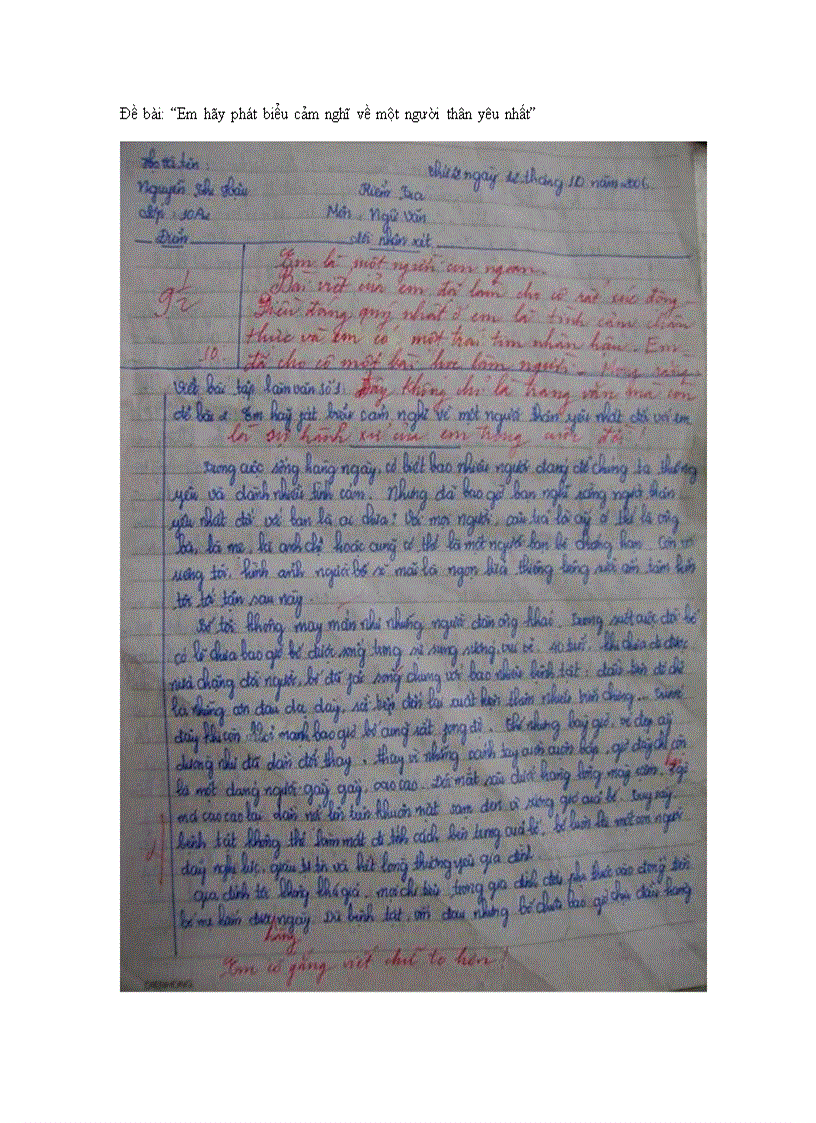 Đề bài: “Em hãy phát biểu cảm nghĩ về một người thân yêu nhất”
Họ và tên: ngày 12 tháng 10 năm 2006
Nguyễn Thị Hậu Kiểm tra
Lớp: 10A1 Môn: Ngữ Văn
Điểm Lời nhận xét
Em là một người con ngoan.
9 1/2 Bài viết của em đã làm cho cô rất xúc động.
Điều đáng quý nhất ở em là tình cảm chân
thực và em có một trái tim nhân hậu. Em
10 đã cho cô một bài học làm người. Mong rằng
Viết bài tập làm văn số 1: đây không chỉ là trang văn mà còn
đề bài: Em hãy phát biểu cảm nghĩ về một người thân yêu nhất đối với em
là sự hành xử của em trong cuộc đời!
Trong cuộc sống hàng ngày, có biết bao nhiêu người đáng để chúng ta thương
yêu và dành nhiều tình cảm. Nhưng đã bao giờ bạn nghĩ rằng người thân
yêu nhất đối với bạn là ai chưa? Với mọi người, câu trả lời ấy có thể là ông
bà, là mẹ, là anh chị hoặc cũng có thể là một người bạn bè chẳng hạn. Còn với
riêng tôi, hình ảnh người bố sẽ mãi là ngọn lửa thiêng liêng sưởi ấm tâm hồn
tôi tới tận sau này.
Bố tôi không may mắn như những người đàn ông khác. Trong suốt cuộc đời bố
có lẽ chưa bao giờ bố được sống trong sự sung sướng, vui vẻ. 40 tuổi, khi chưa đi được
nửa chặng đời người, bố đã phải sống chung với bao nhiêu bệnh tật: đầu tiên đó chỉ
là những cơn đau dạ dày, rồi tiếp đến lại xuất hiện thêm nhiều biến chứng... Trước
đây khi còn khỏe mạnh bao giờ bố cũng rất phong độ. Thế nhưng bây giờ, vẻ đẹp ấy
dường như đã dần đổi thay, thay vì những cánh tay cuồn cuộn bắp, giờ đây chỉ còn
là một dáng người gầy gầy, cao cao. Đôi mắt sâu dưới hàng lông mày rậm,
má cao cao lại dần nổi lên trên khuôn mặt sạm đen vì sương gió của bố. Tuy vậy,
bệnh tật không thể làm mất đi tính cách bên trong của bố, bố luôn là một con người
đầy nghị lực, giàu tự tin và hết lòng thương yêu gia đình.
Gia đình tôi không khá giả, mọi chi tiêu trong gia đình đều phụ thuộc vào đồng tiền
bố mẹ kiếm được hàng ngày. Dù bệnh tật, ốm đau nhưng bố chưa bao giờ chịu đầu hàng
Em cố gắng viết chữ to hơn!